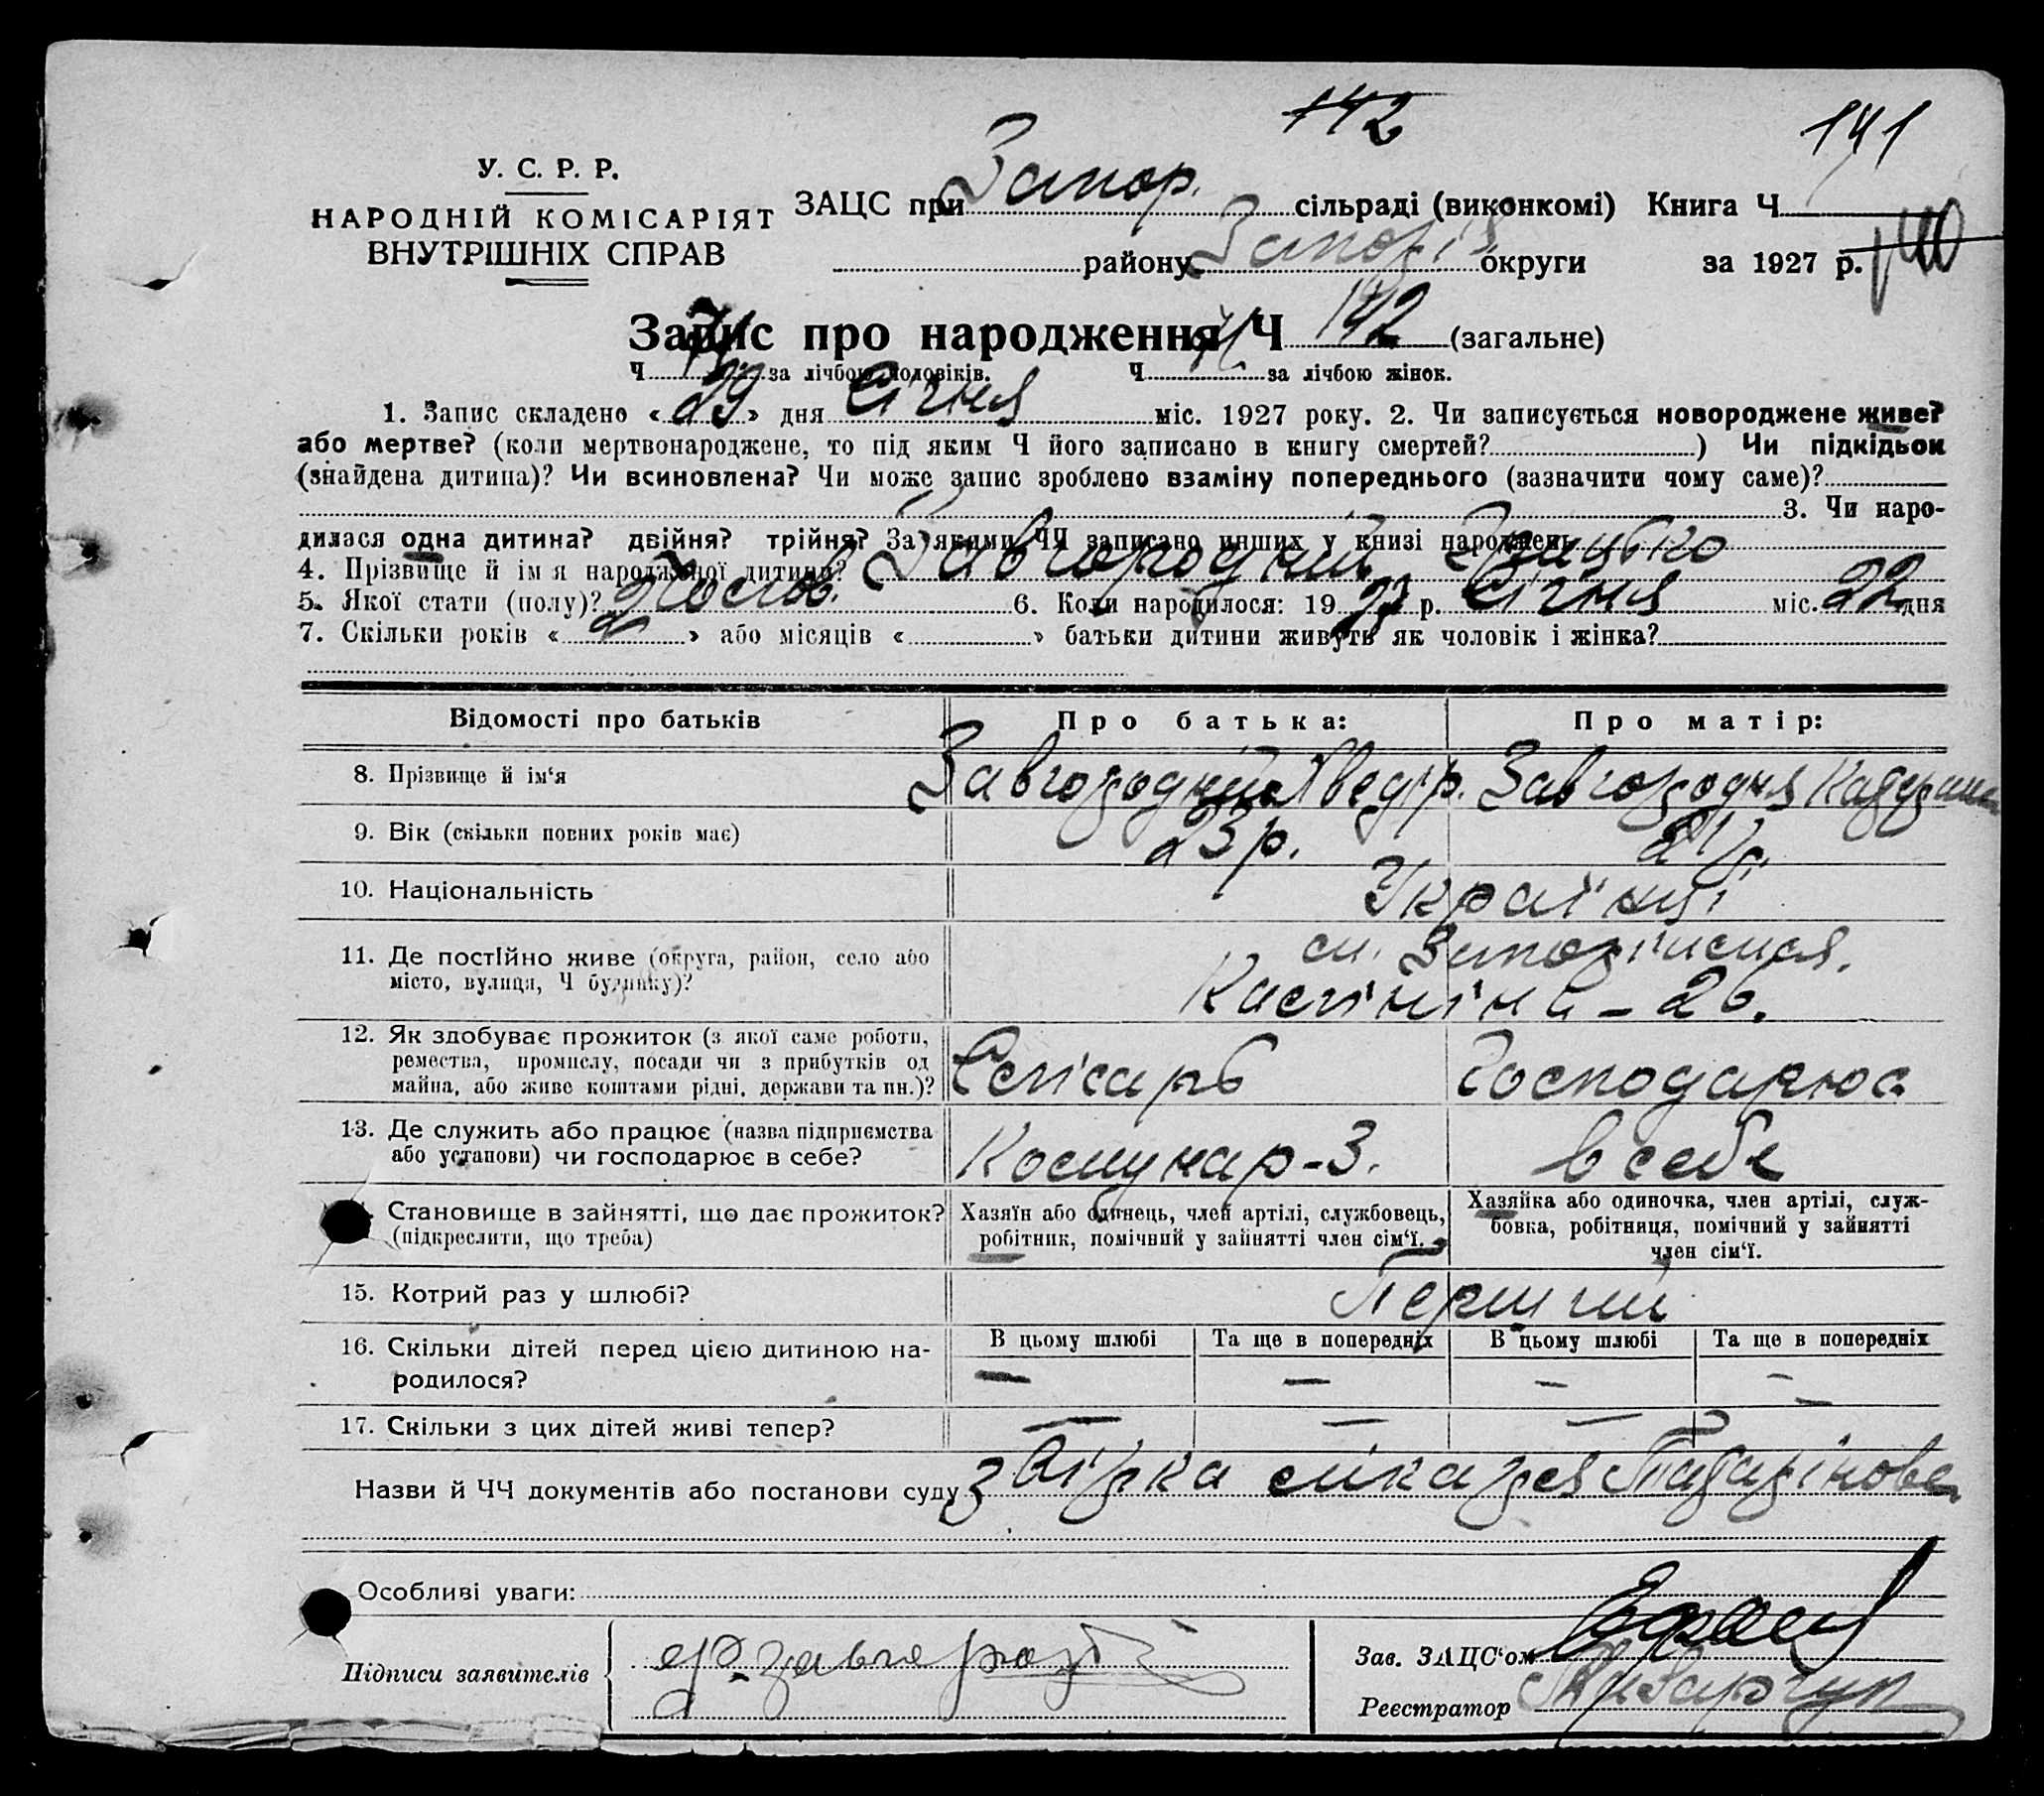 142
141
У. С. Р. Р.
НАРОДНІЙ КОМІСАРІЯТ
ВНУТРІШНІХ СПРАВ
ЗАЦС при Запор. сільраді (виконкомі) Книга Ч
140
району Запоріз округи за 1927 р.
Запис про народження Ч 142 (загальне)
Ч 71 за лічбою чоловіків. Ч за лічбою жінок.
1. Запис складено «29» дня Січня міс. 1927 року. 2. Чи записується новороджене живе?
або мертве? (коли мертвонароджене, то під яким Ч його записано в книгу смертей? ) Чи підкідьок
(знайдена дитина)? Чи всиновлена? Чи може запис зроблено взаміну попереднього (зазначити чому саме)?
3. Чи наро-
дилася одна дитина? двійня? трійня? За якими ЧЧ записано инших у книзі народжень
4. Прізвище й ім я народженої дитини? Завгородний Грицько
5. Якої стати (полу)? Чолов. 6. Коли народилося: 1927 р. Січня міс. 22 дня
7. Скільки років « 2 » або місяців « » батьки дитини живуть як чоловік і жінка?
Відомості про батьків Про батька: Про матір:
8. Прізвище й ім‘я Завгородний Хведір. Завгородня Катерина
9. Вік (скільки повних років має) 23 р. 21 р.
10. Національність Українці
11. Де постійно живе (округа, район, село або
місто, вулиця, Ч будинку)?
Калініна - 26.
12. Як здобуває прожиток (з якої саме роботи,
ремества, промислу, посади чи з прибутків од
майна, або живе коштами рідні, держави та пн.)?
Слісарь Господарює
13. Де служить або працює (назва підприємства
або установи) чи господарює в себе?
Комунар-З. в себе
Становище в зайнятті, що дає прожиток?
(підкреслити, що треба)
Хазяїн або одинець, член артілі, службовець,
робітник, помічний у зайнятті член сім‘ї.
Хазяйка або одиночка, член артілі, служ-
бовка, робітниця, помічний у зайнятті
член сім‘ї.
15. Котрий раз у шлюбі? Перший
16. Скільки дітей перед цією дитиною на-
родилося?
В цьому шлюбі Та ще в попередніх В цьому шлюбі Та ще в попередніх
— — — —
17. Скільки з цих дітей живі тепер? — — — —
Назви й ЧЧ документів або постанови суду Довідка лікаря
Особливі уваги:
Підписи заявителів
Зав. ЗАЦС‘ом
Реєстратор